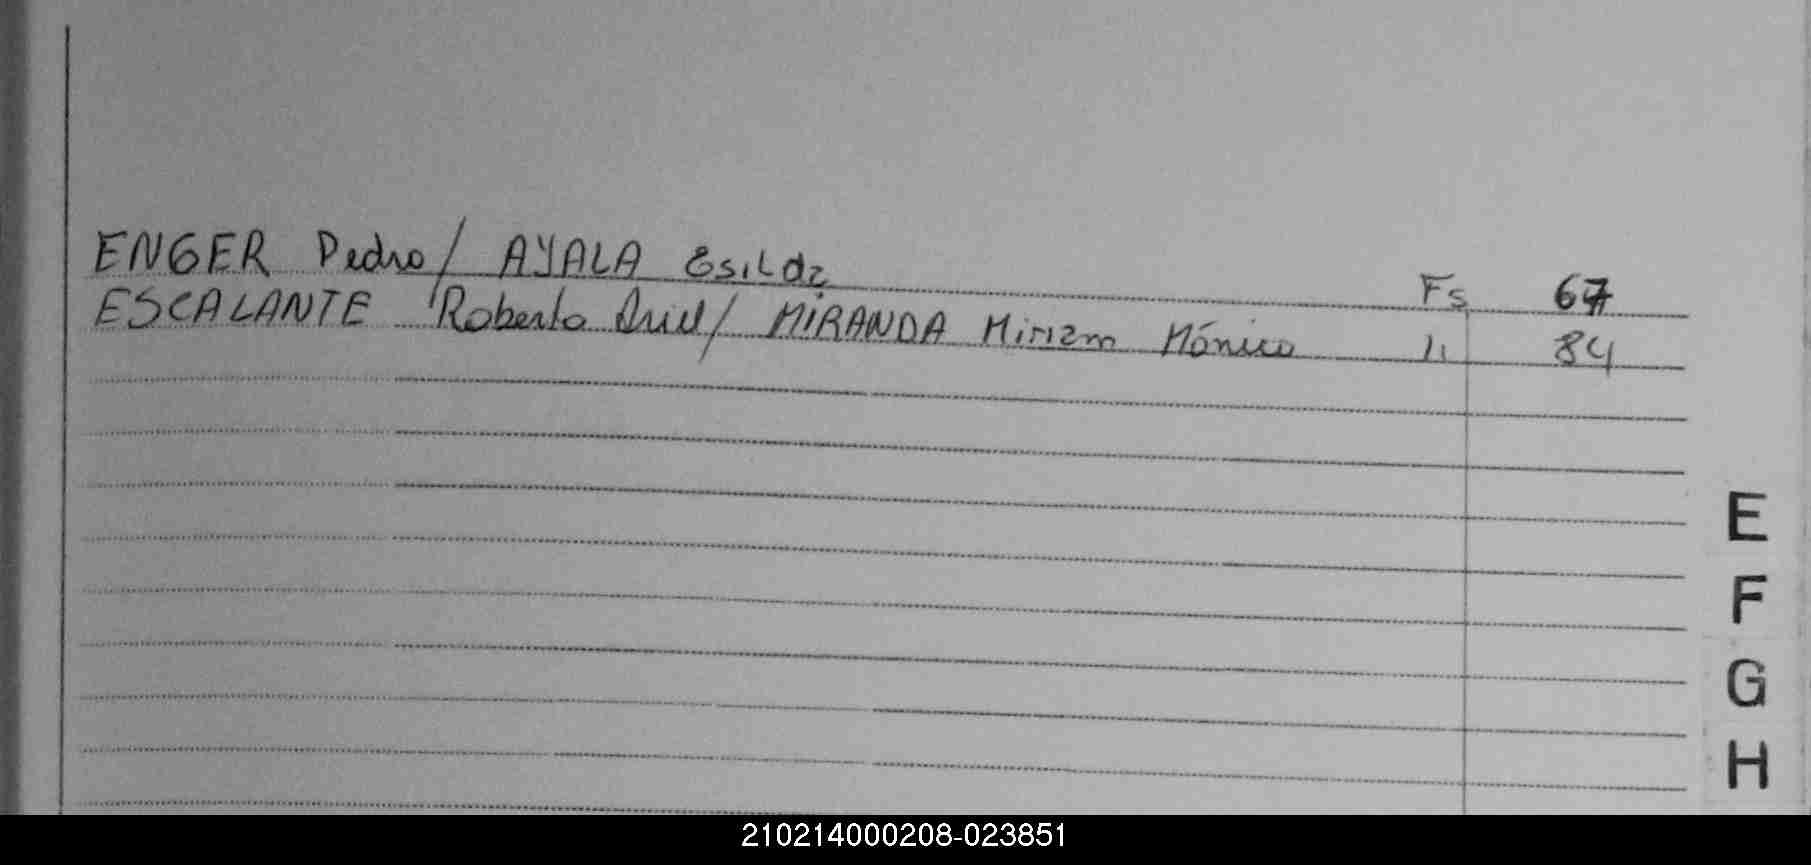 ENGER Pedro/ AYALA Esilda Fs 67
ESCALANTE Roberto Ariel/ MIRANDA Miriam Mónica 11 84
E
F
G
H
210214000208-023851